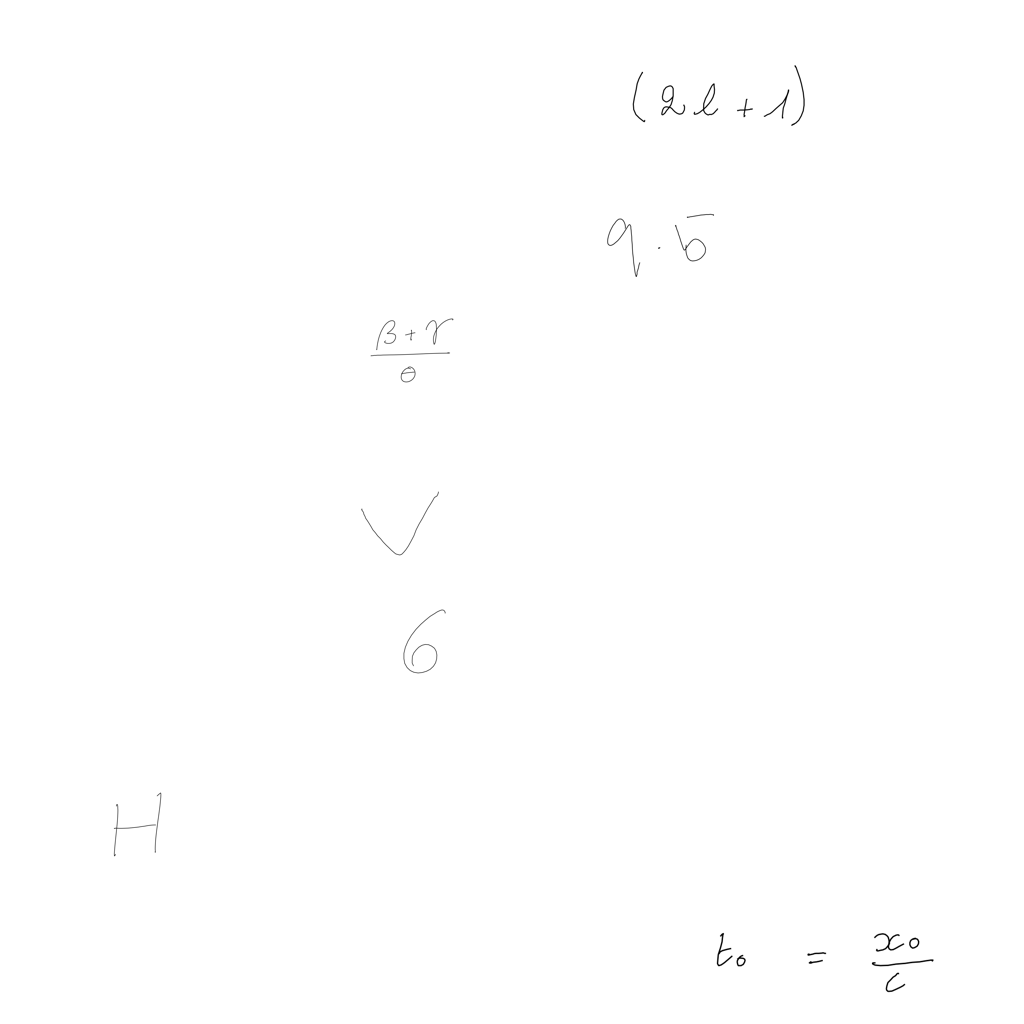 (2l+1)
9.5
β+γ/θ
V
6
H
t₀ = x₀/c